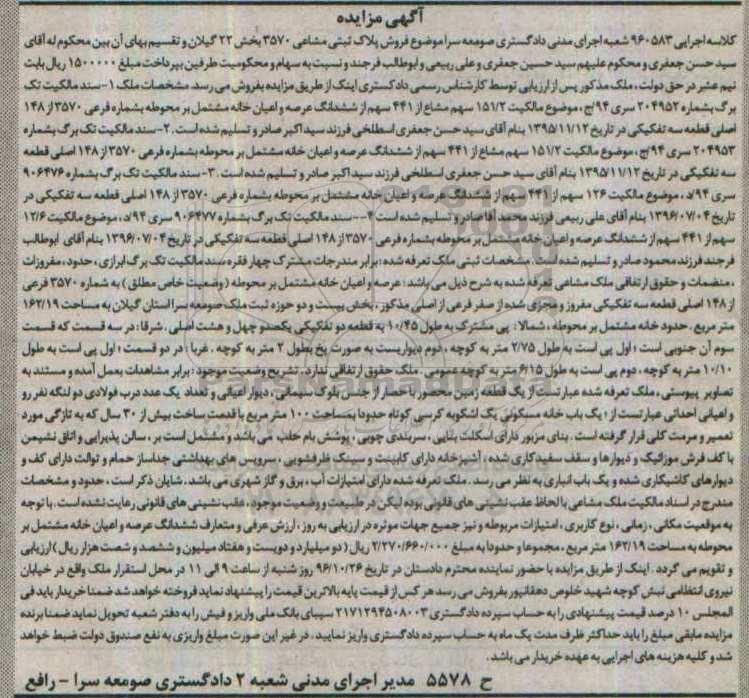 آگهی مزایده
کلاسه اجرایی ۹۶۰۵۸۳ شعبه اجرای مدنی دادگستری صومعه سرا موضوع فروش پلاک ثبتی مشاعی ۳۵۷۰ بخش ۲۲ گیلان و تقسیم بهای آن بین محکوم له آقای
سید حسن جعفری و محکوم علیهم سید حسین جعفری و علی ربیعی و ابوطالب فرجند و نسبت به سهام و محکومیت طرفین بپرداخت مبلغ ۱۵۰۰۰۰۰ ریال بابت
نیم عشر در حق دولت، ملک مذکور پس از ارزیابی توسط کارشناس رسمی دادگستری اینک از طریق مزایده بفروش می رسد. مشخصات ملک ۱-سند مالکیت تک
برگ بشماره ۲۰۴۹۵۲ سری ۹۴/ج، موضوع مالکیت ۱۵۱/۲ سهم مشاع از ۴۴۱ سهم از ششدانگ عرصه و اعیان خانه مشتمل بر محوطه بشماره فرعی ۳۵۷۰ از ۱۴۸
اصلی قطعه سه تفکیکی در تاریخ ۱۳۹۵/۱۱/۱۲ بنام آقای سید حسن جعفری اسطلخی فرزند سید اکبر صادر و تسلیم شده است. ۲-سند مالکیت تک برگ بشماره
۲۰۴۹۵۳ سری ۹۴/ج، موضوع مالکیت ۱۵۱/۲ سهم مشاع از ۴۴۱ سهم از ششدانگ عرصه و اعیان خانه مشتمل بر محوطه بشماره فرعی ۳۵۷۰ از ۱۴۸ اصلی قطعه
سه تفکیکی در تاریخ ۱۳۹۵/۱۱/۱۲ بنام آقای سید حسن جعفری اسطلخی فرزند سید اکبر صادر و تسلیم شده است. ۳-سند مالکیت تک برگ بشماره ۹۰۶۴۷۶
سری ۹۴/د، موضوع مالکیت ۱۲۶ سهم از ۴۴۱ سهم از ششدانگ عرصه و اعیان خانه مشتمل بر محوطه بشماره فرعی ۳۵۷۰ از ۱۴۸ اصلی قطعه سه تفکیکی در
تاریخ ۱۳۹۶/۰۷/۰۴ بنام آقای علی ربیعی فرزند محمد آقا صادر و تسلیم شده است ۴--سند مالکیت تک برگ بشماره ۹۰۶۴۷۷ سری ۹۴/د، موضوع مالکیت ۱۲/۶
سهم از ۴۴۱ سهم از ششدانگ عرصه و اعیان خانه مشتمل بر محوطه بشماره فرعی ۳۵۷۰ از ۱۴۸ اصلی قطعه سه تفکیکی در تاریخ ۱۳۹۶/۰۷/۰۴ بنام آقای ابوطالب
فرجند فرزند محمود صادر و تسلیم شده است. مشخصات ثبتی ملک تعرفه شده: برابر مندرجات مشترک چهار فقره سند مالکیت تک برگ ابرازی، حدود، مفروزات
، منضمات و حقوق ارتفاقی ملک مشاعی تعرفه شده به شرح ذیل می باشد: عرصه و اعیان خانه مشتمل بر محوطه (وضعیت خاص مطلق) به شماره ۳۵۷۰ فرعی
از ۱۴۸ اصلی قطعه سه تفکیکی مفروز و مجزی شده از صفر فرعی از اصلی مذکور، بخش بیست و دو حوزه ثبت ملک صومعه سرا استان گیلان به مساحت ۱۶۲/۱۹
متر مربع. حدود خانه مشتمل بر محوطه، شمالا: پی مشترک به طول ۱۰/۴۵ به قطعه دو تفکیکی یکصدو چهل و هشت اصلی. شرقا: در سه قسمت که قسمت
سوم آن جنوبی است؛ اول پی است به طول ۲/۷۵ متر به کوچه، دوم دیواریست به صورت پخ بطول ۲ متر به کوچه، غربا: در دو قسمت؛ اول پی است به طول
۱۰/۱۰ متر به کوچه، دوم پی است به طول ۶/۱۵ متر به کوچه عمومی. ملک حقوق ارتفاقی ندارد. تشریح وضعیت موجود: برابر مشاهدات بعمل آمده و مستند به
تصاویر پیوستی، ملک تعرفه شده عبارتست از یک قطعه زمین محصور با حصار از جنس بلوک سیمانی، دیوار اعیانی و تعداد یک عدد درب فولادی دو لنگه نفر رو
و اعیانی احداثی عبارتست از: یک باب خانه مسکونی یک اشکوبه کرسی کوتاه حدودا بمساحت ۱۰۰ متر مربع با قدمت ساخت بیش از ۳۰ سال که به تازگی مورد
تعمیر و مرمت کلی قرار گرفته است. بنای مزبور دارای اسکلت بنایی، سربندی چوبی، پوشش بام حلب می باشد و مشتمل است بر، سالن پذیرایی و اتاق نشیمن
با کف فرش موزائیک و دیوارها و سقف سفیدکاری شده، آشپزخانه دارای کابینت و سینک ظرفشویی، سرویس های بهداشتی جداساز حمام و توالت دارای کف و
دیوارهای کاشیکاری شده و یک باب انباری به نظر می رسد. ملک تعرفه شده دارای امتیازات آب، برق و گاز شهری می باشد. شایان ذکر است، حدود و مشخصات
مندرج در اسناد مالکیت ملک مشاعی با لحاظ عقب نشینی های قانونی بوده لیکن در طبیعت و وضعیت موجود، عقب نشینی های قانونی رعایت نشده است. با توجه
به موقعیت مکانی، زمانی، نوع کاربری، امتیازات مربوطه و نیز جمیع جهات موثره در ارزیابی به روز، ارزش عرفی و متعارف ششدانگ عرصه و اعیان خانه مشتمل بر
محوطه به مساحت ۱۶۲/۱۹ متر مربع، مجموعا و حدودا به مبلغ ۲/۲۷۰/۶۶۰/۰۰۰ ریال (دو میلیارد و دویست و هفتاد میلیون و ششصد و شصت هزار ریال) ارزیابی
و تقویم می گردد. اینک از طریق مزایده با حضور نماینده محترم دادستان در تاریخ ۹۶/۱۰/۲۶ روز شنبه از ساعت ۹ الی ۱۱ در محل استقرار ملک واقع در خیابان
نیروی انتظامی نبش کوچه شهید خلوص دهقانپور بفروش می رسد هر کس از قیمت پایه بالاترین قیمت را پیشنهاد نماید فروخته خواهد شد ضمنا خریدار باید فی
المجلس ۱۰ درصد قیمت پیشنهادی را به حساب سپرده دادگستری ۲۱۷۱۲۹۴۵۰۸۰۰۳ سیبای بانک ملی واریز و فیش را به دفتر شعبه تحویل نماید ضمنا برنده
مزایده مابقی مبلغ را باید حداکثر ظرف مدت یک ماه به حساب سپرده دادگستری واریز نمایید. در غیر این صورت مبلغ واریزی به نفع صندوق دولت ضبط خواهد
شد و کلیه هزینه های اجرایی به عهده خریدار می باشد.
ح ۵۵۷۸ مدیر اجرای مدنی شعبه ۲ دادگستری صومعه سرا - رافع
ParsNamadData